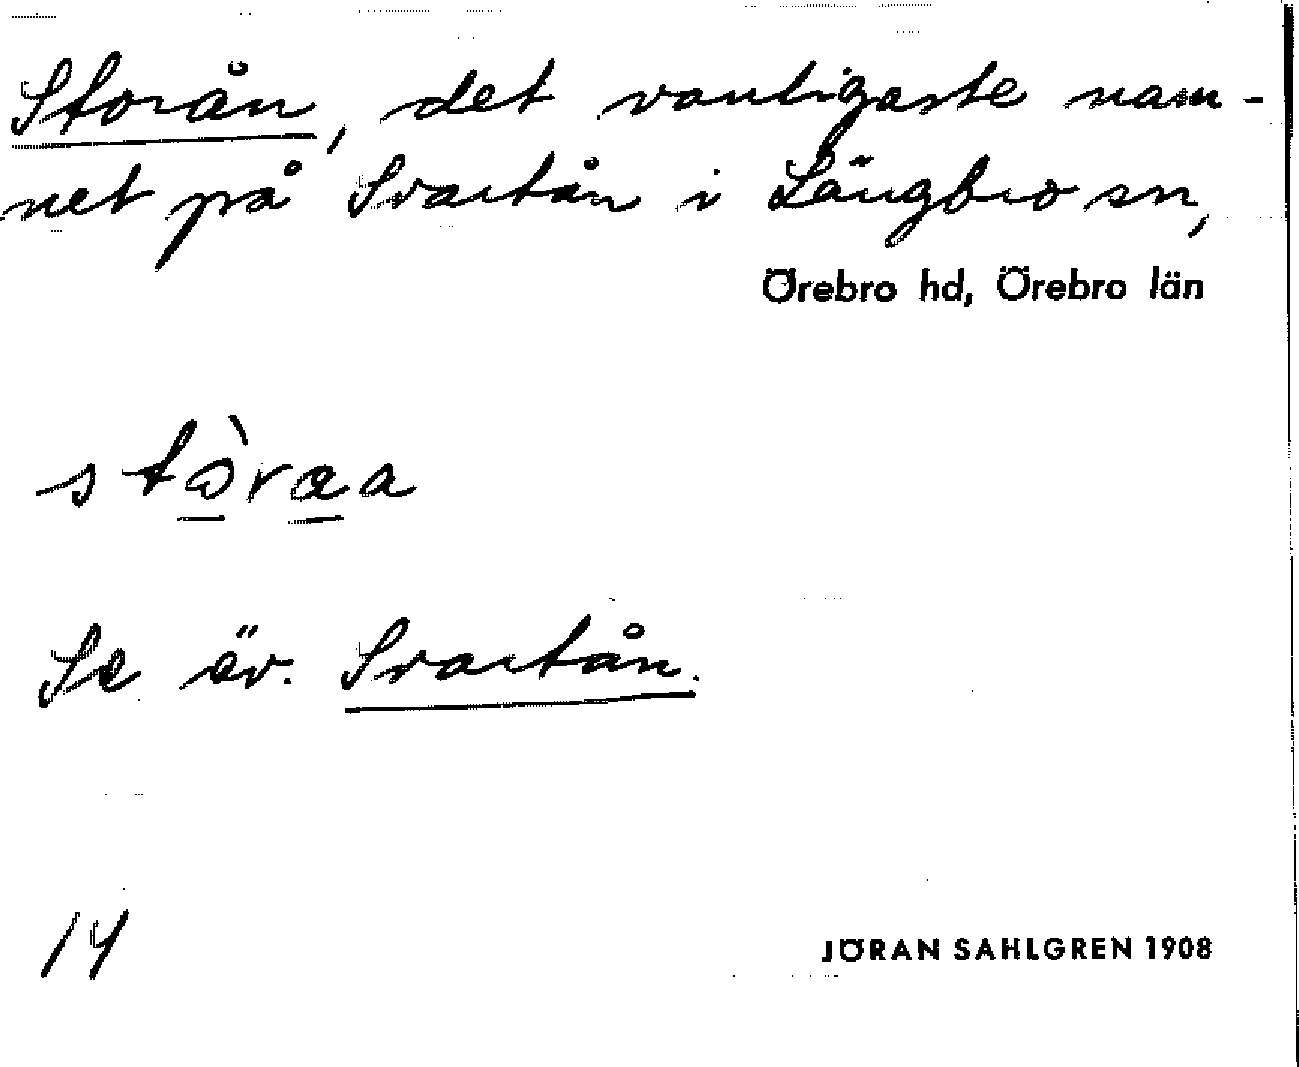 Storån, det vanligaste nam-
net på Svartån i Längbro sn,
Örebro hd, Örebro län
Se äv. Svartån.
14
JÖRAN SAHLGREN 1908